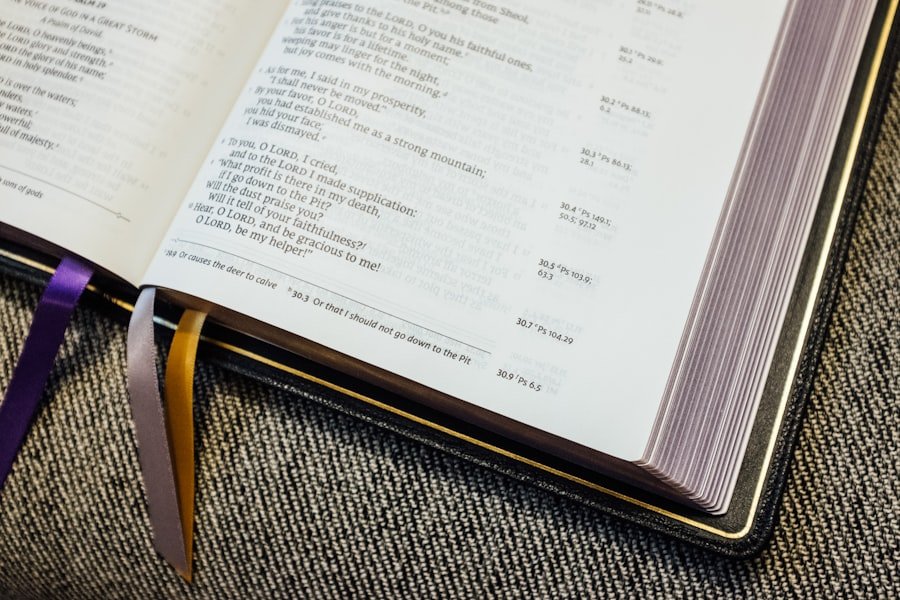 PSALM 29
VOICE OF GOD IN A GREAT STORM
A Psalm of David.
LORD, O heavenly beings,
LORD glory and strength.
LORD the glory of his name;
LORD in holy splendor.
is over the waters;
waters.
powerful;
full of majesty.
sons of gods
from Sheol,
among those
the Pit.
Sing praises to the LORD, O you his faithful ones,
and give thanks to his holy name.
For his anger is but for a moment;
his favor is for a lifetime.
Weeping may linger for the night,
but joy comes with the morning.
As for me, I said in my prosperity,
"I shall never be moved."
By your favor, O LORD,
you had established me as a strong mountain;
you hid your face;
I was dismayed.
To you, O LORD, I cried,
and to the LORD I made supplication:
"What profit is there in my death,
if I go down to the Pit?
Will the dust praise you?
Will it tell of your faithfulness?
Hear, O LORD, and be gracious to me!
O LORD, be my helper!"
Or causes the deer to calve
30.3 Or that I should not go down to the Pit
30.2 Ps 88.13;
6.2
30.3 Ps 86.13;
28.1
30.4 Ps 149.1;
50.5; 97.12
30.5 Ps 103.9;
63.3
30.7 Ps 104.29
30.9 Ps 6.5